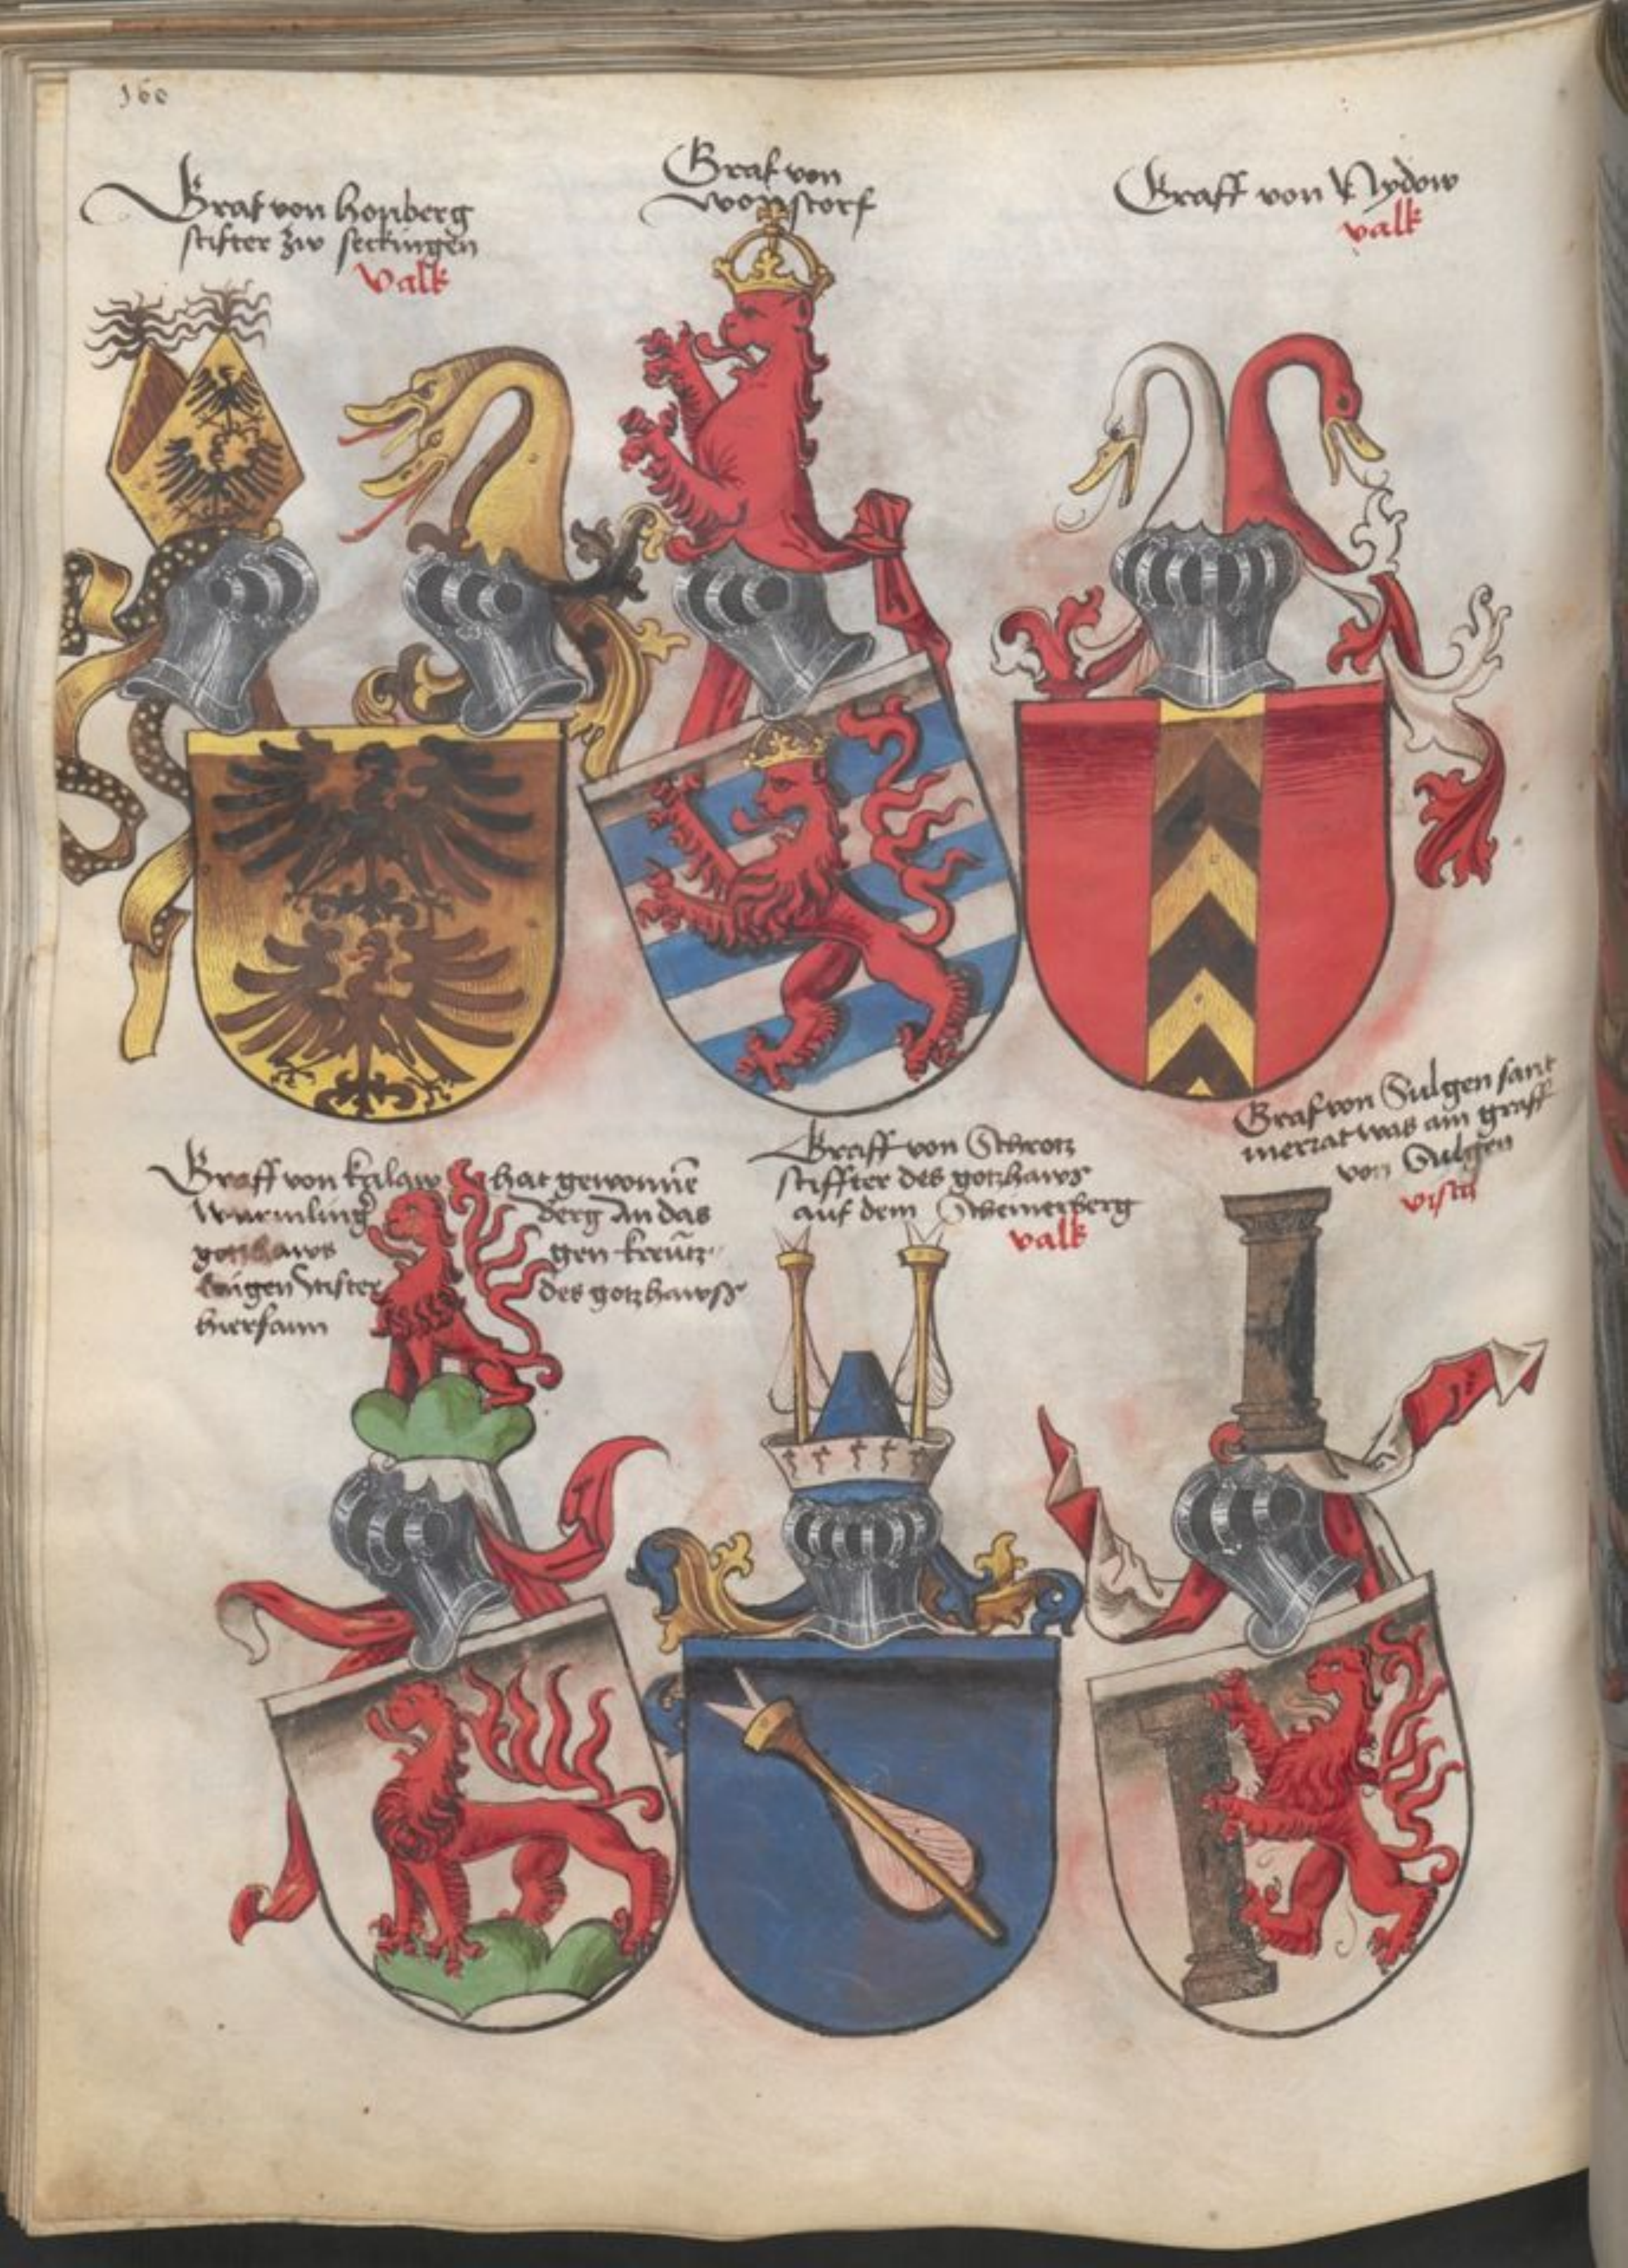 160
Graf von honberg
stifter zw seckingen
valk
Graf von
wonstorf
Graff von Nydow
valk
Graff von kalaw hat gewonnē
wurmling berg An das
gotzhaws gen kreutz
lingen stifter des gotzhawss
hiersaum
Graff von Schrotz
stiffter des gotzhaws
auf dem Sweinerberg
valk
Graf von Sulgen sant
merrat was ain graff
von Sulgen